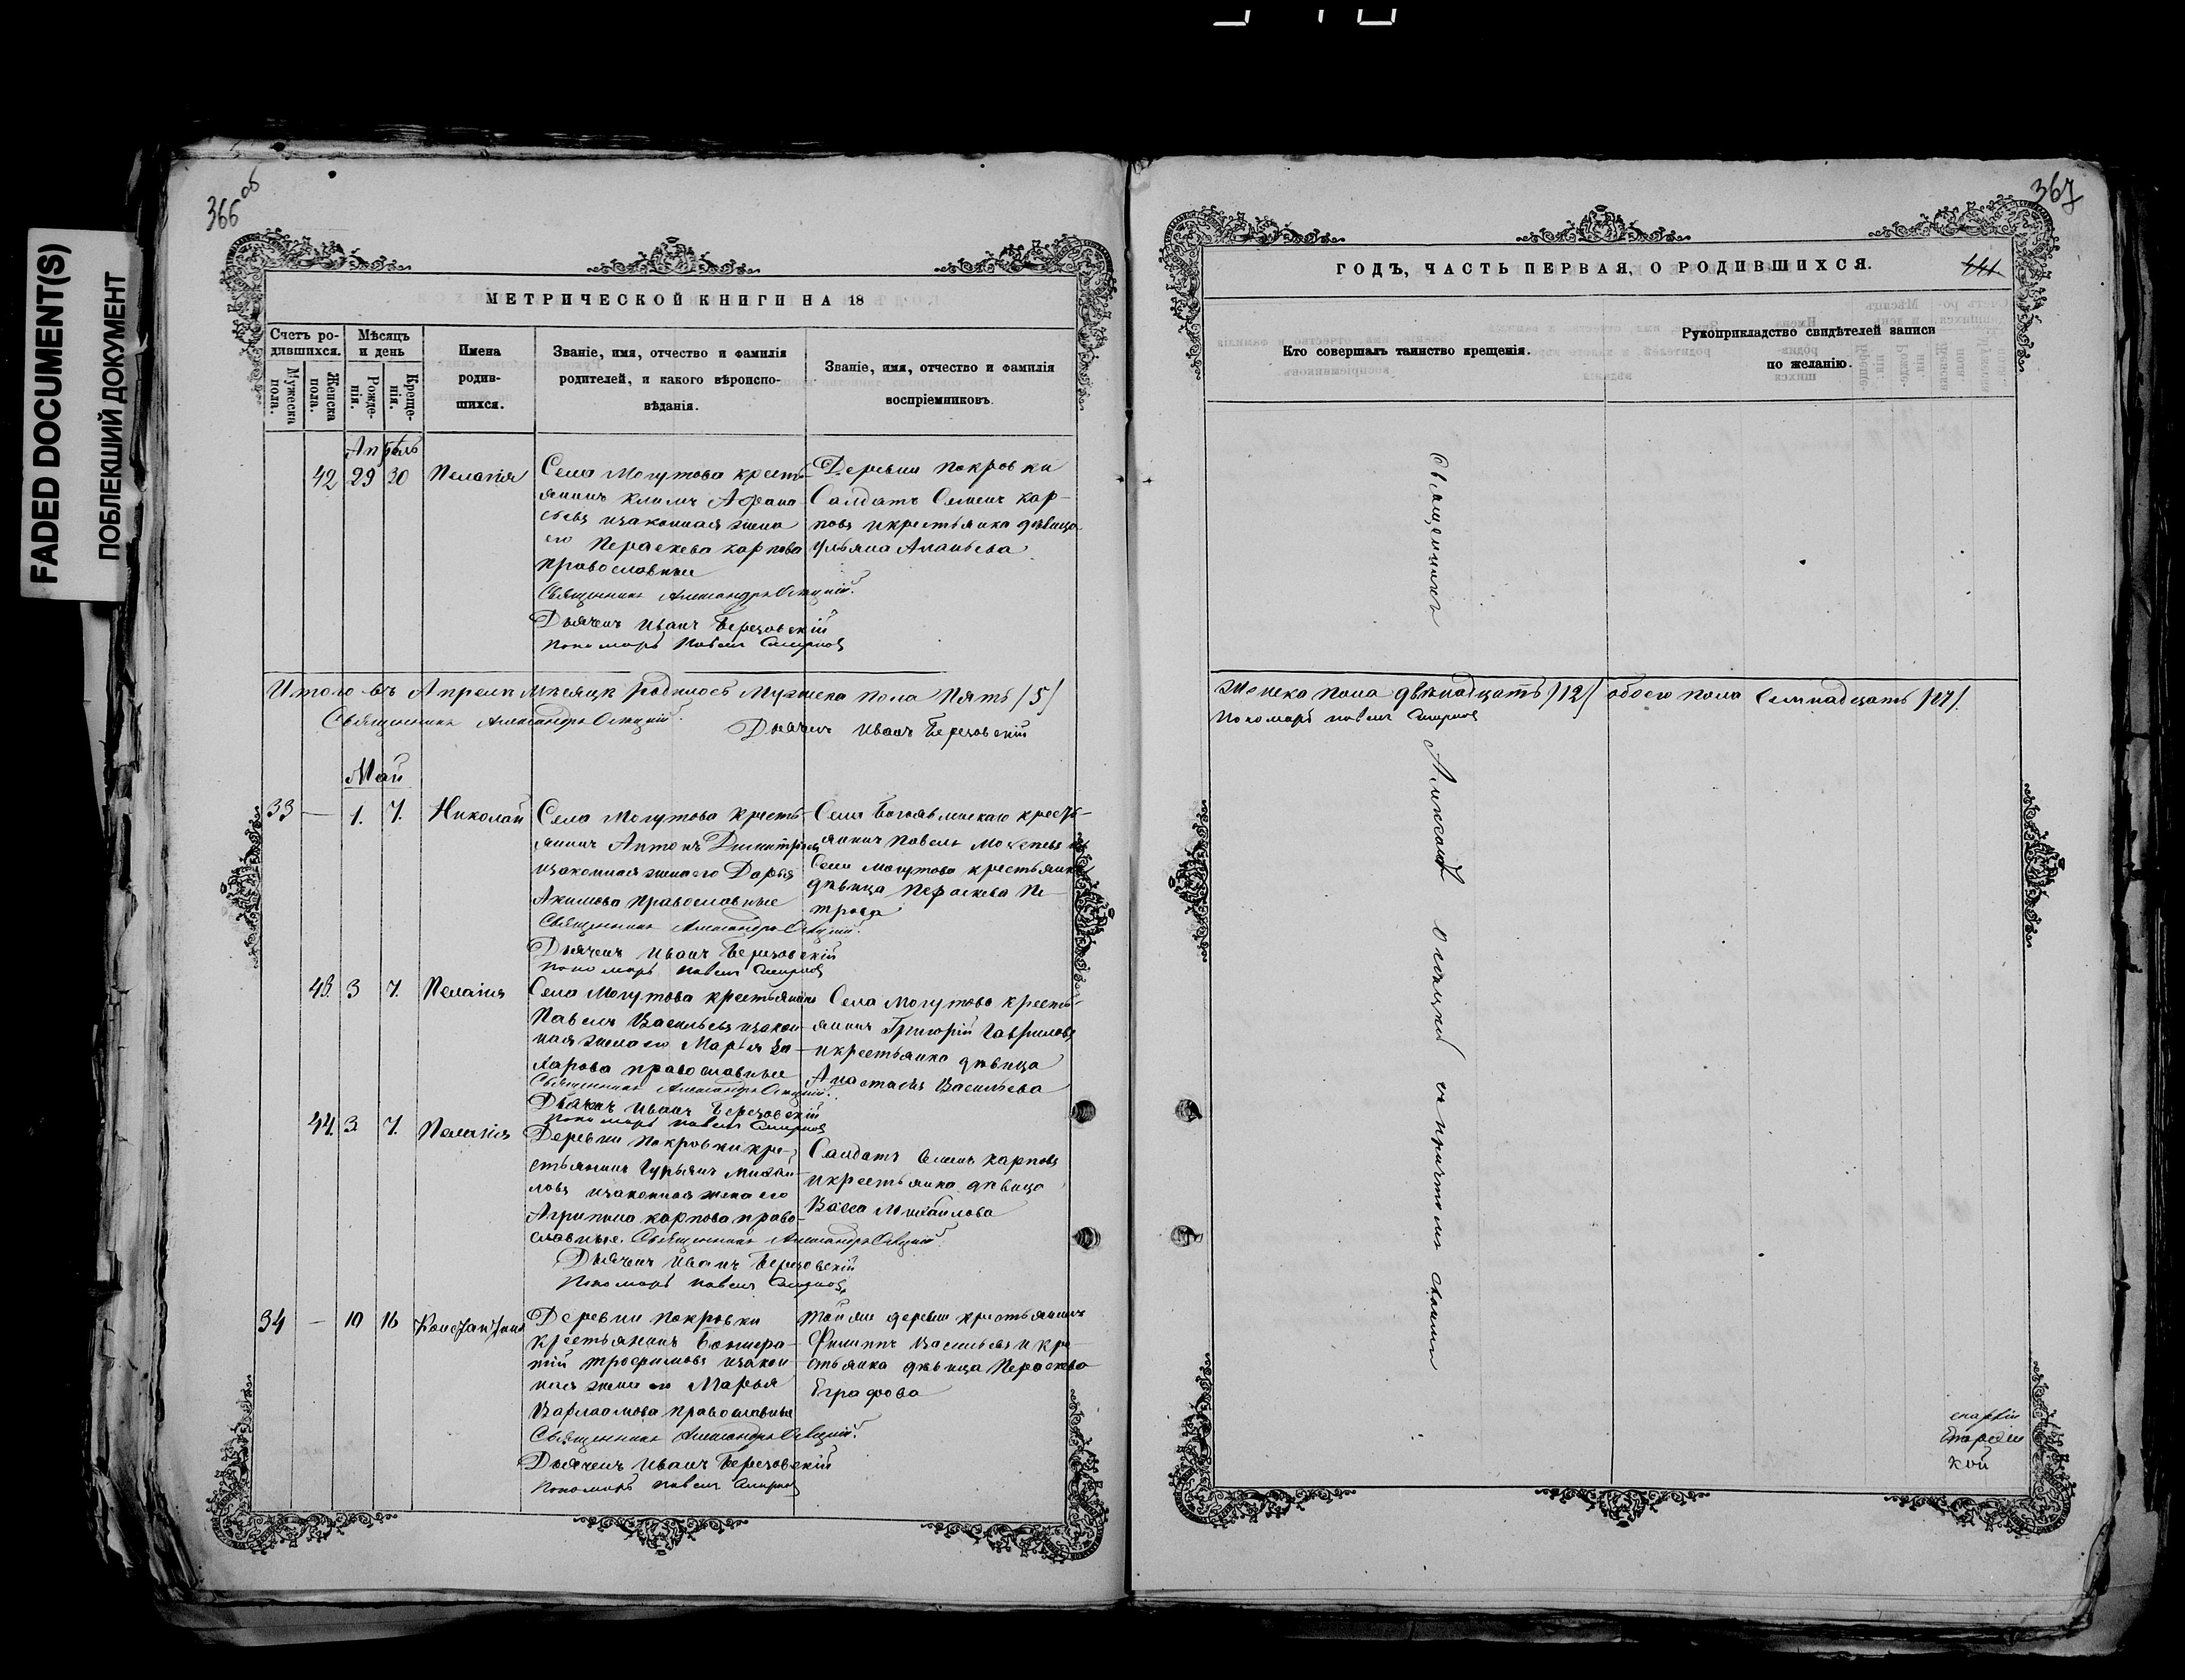 FADED DOCUMENT(S)
ПОБЛЕКШИЙ ДОКУМЕНТ
366 об
МЕТРИЧЕСКОЙ КНИГИ НА 18
Счетъ ро-
дившихся.
Мужеска
пола.
Женска
пола.
Мѣсяцъ
и день
Рожде-
нія.
Креще-
нія.
Имена
родив-
шихся.
Званіе, имя, отчество и фамилія
родителей, и какого вѣроиспо-
вѣданія.
Званіе, имя, отчество и фамилія
воспріемниковъ.
Апрѣль
42 29 30 Пелагія
Села Могутова кресть-
янинъ Климъ Афана-
сьевъ изаконная жена
его Пераскева Карпова
православные
Священникъ Александръ
Дьячекъ Иванъ Березовскій
Пономарь Павелъ Смирновъ
Деревни Покровки
Салдатъ Семенъ Кар-
повъ икрестьянка дѣвица
Ульяна Ананьева
Итого въ Апрелѣ мѣсяцѣ родилось Мужеска пола Пять /5/
Священникъ Александръ
Дьячекъ Иванъ Березовскій
Май
33 — 1. 7. Николай
Села Могутова кресть-
янинъ Антонъ Димитріевъ
изаконная жена его Дарья
Акимова православные
Священникъ Александръ
Дьячекъ Иванъ Березовскій
Пономарь Павелъ Смирновъ
Села Богоявленскаго кресть-
янинъ Павелъ
Села Могутова крестьянка
дѣвица Пераскева Пе-
трова
43. 3 7. Пелагія
Села Могутова крестьянинъ
Павелъ Васильевъ изакон-
ная жена его Марья За-
харова православные
Священникъ Александръ
Дьячекъ Иванъ Березовскій
Пономарь Павелъ Смирновъ
Села Могутова кресть-
янинъ Григорій Гавриловъ
икрестьянка дѣвица
Анастасія Васильева
44. 3. 7. Пелагія
Деревни Покровки кре-
стьянинъ Гурьянъ Михай-
ловъ изаконная жена его
Агрипина Карпова право-
славные. Священникъ Александръ
Дьячекъ Иванъ Березовскій
Пономарь Павелъ Смирновъ
Салдатъ Семенъ Карповъ
икрестьянка дѣвица
Васса Михайлова
34 — 10 16 Константинъ
Деревни Покровки
крестьянинъ
Трофимовъ изакон-
ная жена его Марья
Варлаамова православные
Священникъ Александръ
Дьячекъ Иванъ Березовскій
Пономарь Павелъ Смирновъ
Той же деревни крестьянинъ
Филиппъ Васильевъ и кре-
стьянка дѣвица Пераскева
Евграфова
367
ГОДЪ, ЧАСТЬ ПЕРВАЯ, О РОДИВШИХСЯ.
Кто совершалъ таинство крещенія.
Рукоприкладство свидѣтелей записи
по желанію.
Священникъ
Женска пола двѣнадцать /12/ обоего пола Семнадцать /17/.
Пономарь Павелъ Смирновъ
Александръ
съ причтомъ своимъ
епархіи
кой